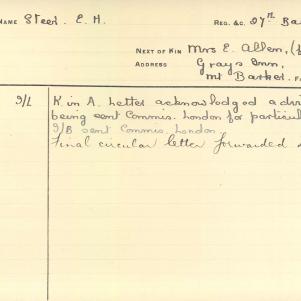 NAME Steer. E. H. REG. &C. 27th Ba
NEXT OF KIN Mrs E. Allen, (
ADDRESS Grays Inn,
Mt Barker.
9/L K in A. Letter acknowledged
being sent Commis. London for particul
9/B sent Commis. London.
Final circular letter forwarded